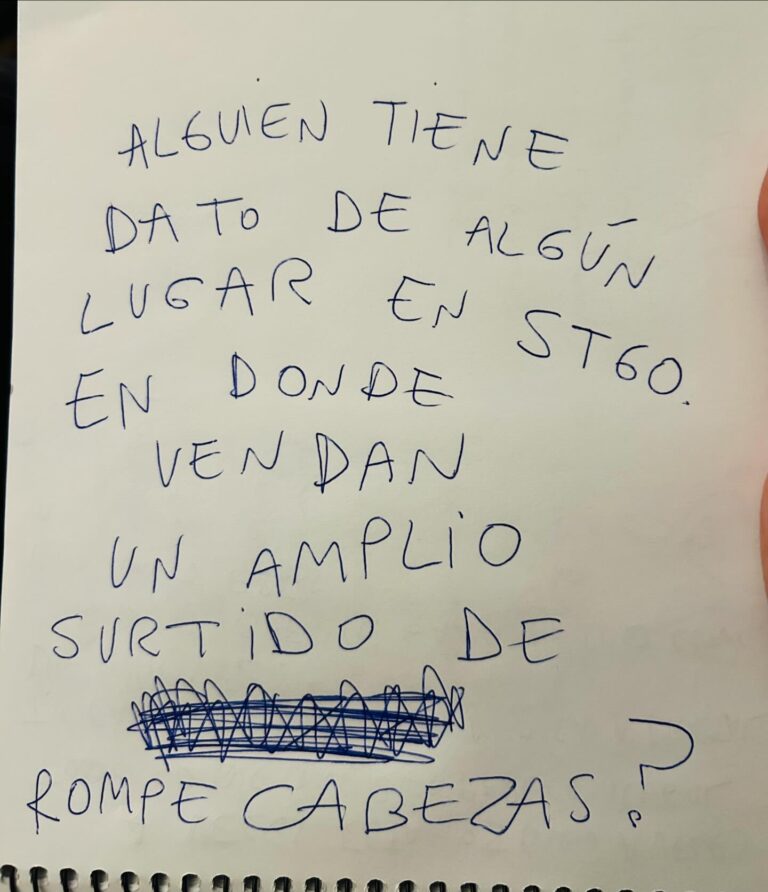 ALGUIEN TIENE
DATO DE ALGÚN
LUGAR EN STGO.
EN DONDE
VENDAN
UN AMPLIO
SURTIDO DE
ROMPE CABEZAS?